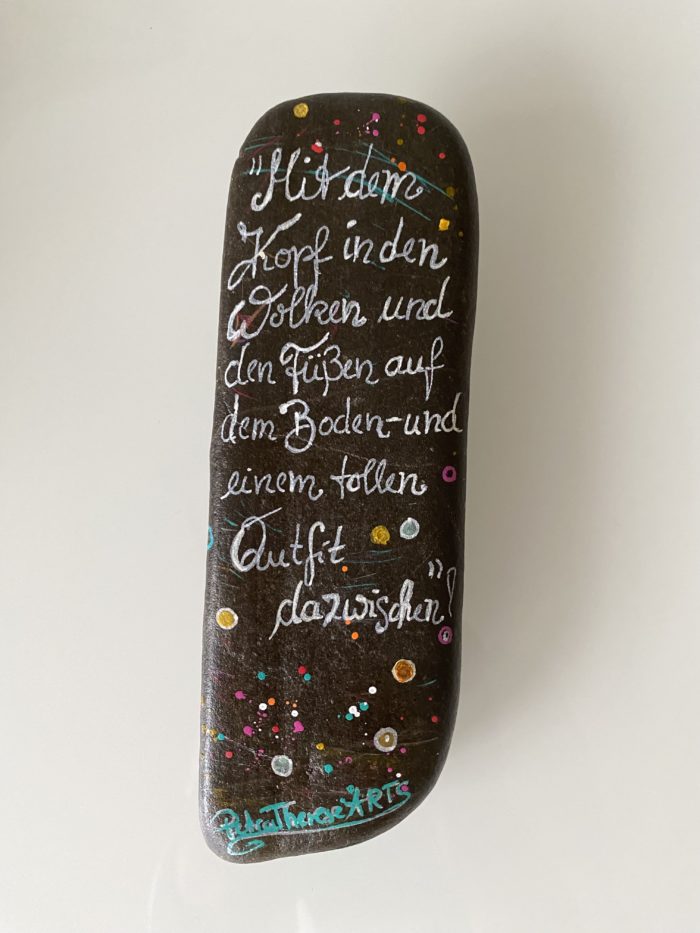 "Mit dem
Kopf in den
Wolken und
den Füßen auf
dem Boden-und
einem tollen
Outfit
dazwischen"!
PetraThereseARTS